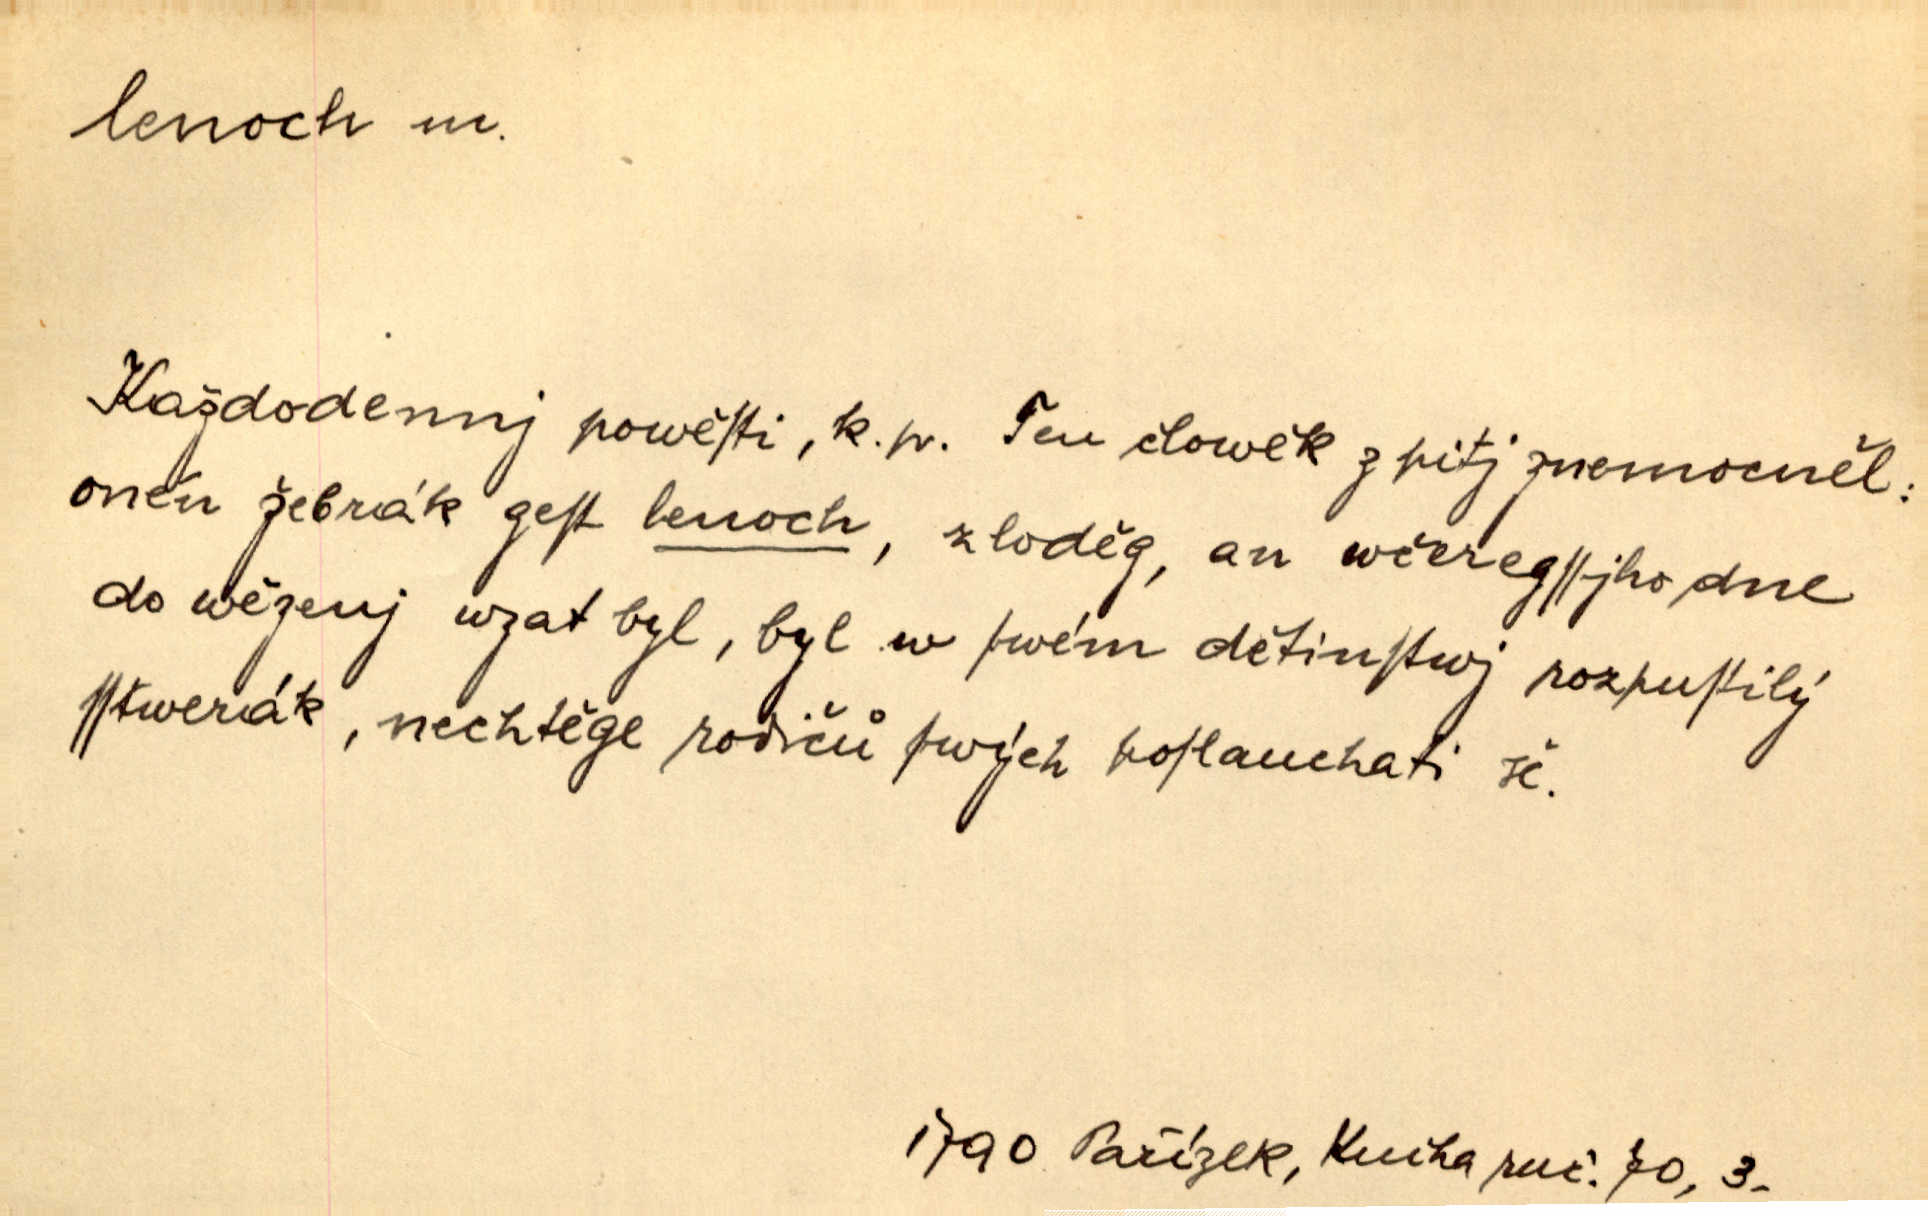 lenoch m.
Každodennj powěſti, k. p. Ten člowěk z pitj znemocněl:
onen žebrák geſt lenoch, zloděg, an wčeregſſjho dne
do wězenj wzat byl, byl w ſwém dětinſtwj rozpuſtilý
ſſtwerák, nechtěge rodičů ſwých poſlauchati sč.
1790 Pařízek, Kniha ruč. 70, 3.